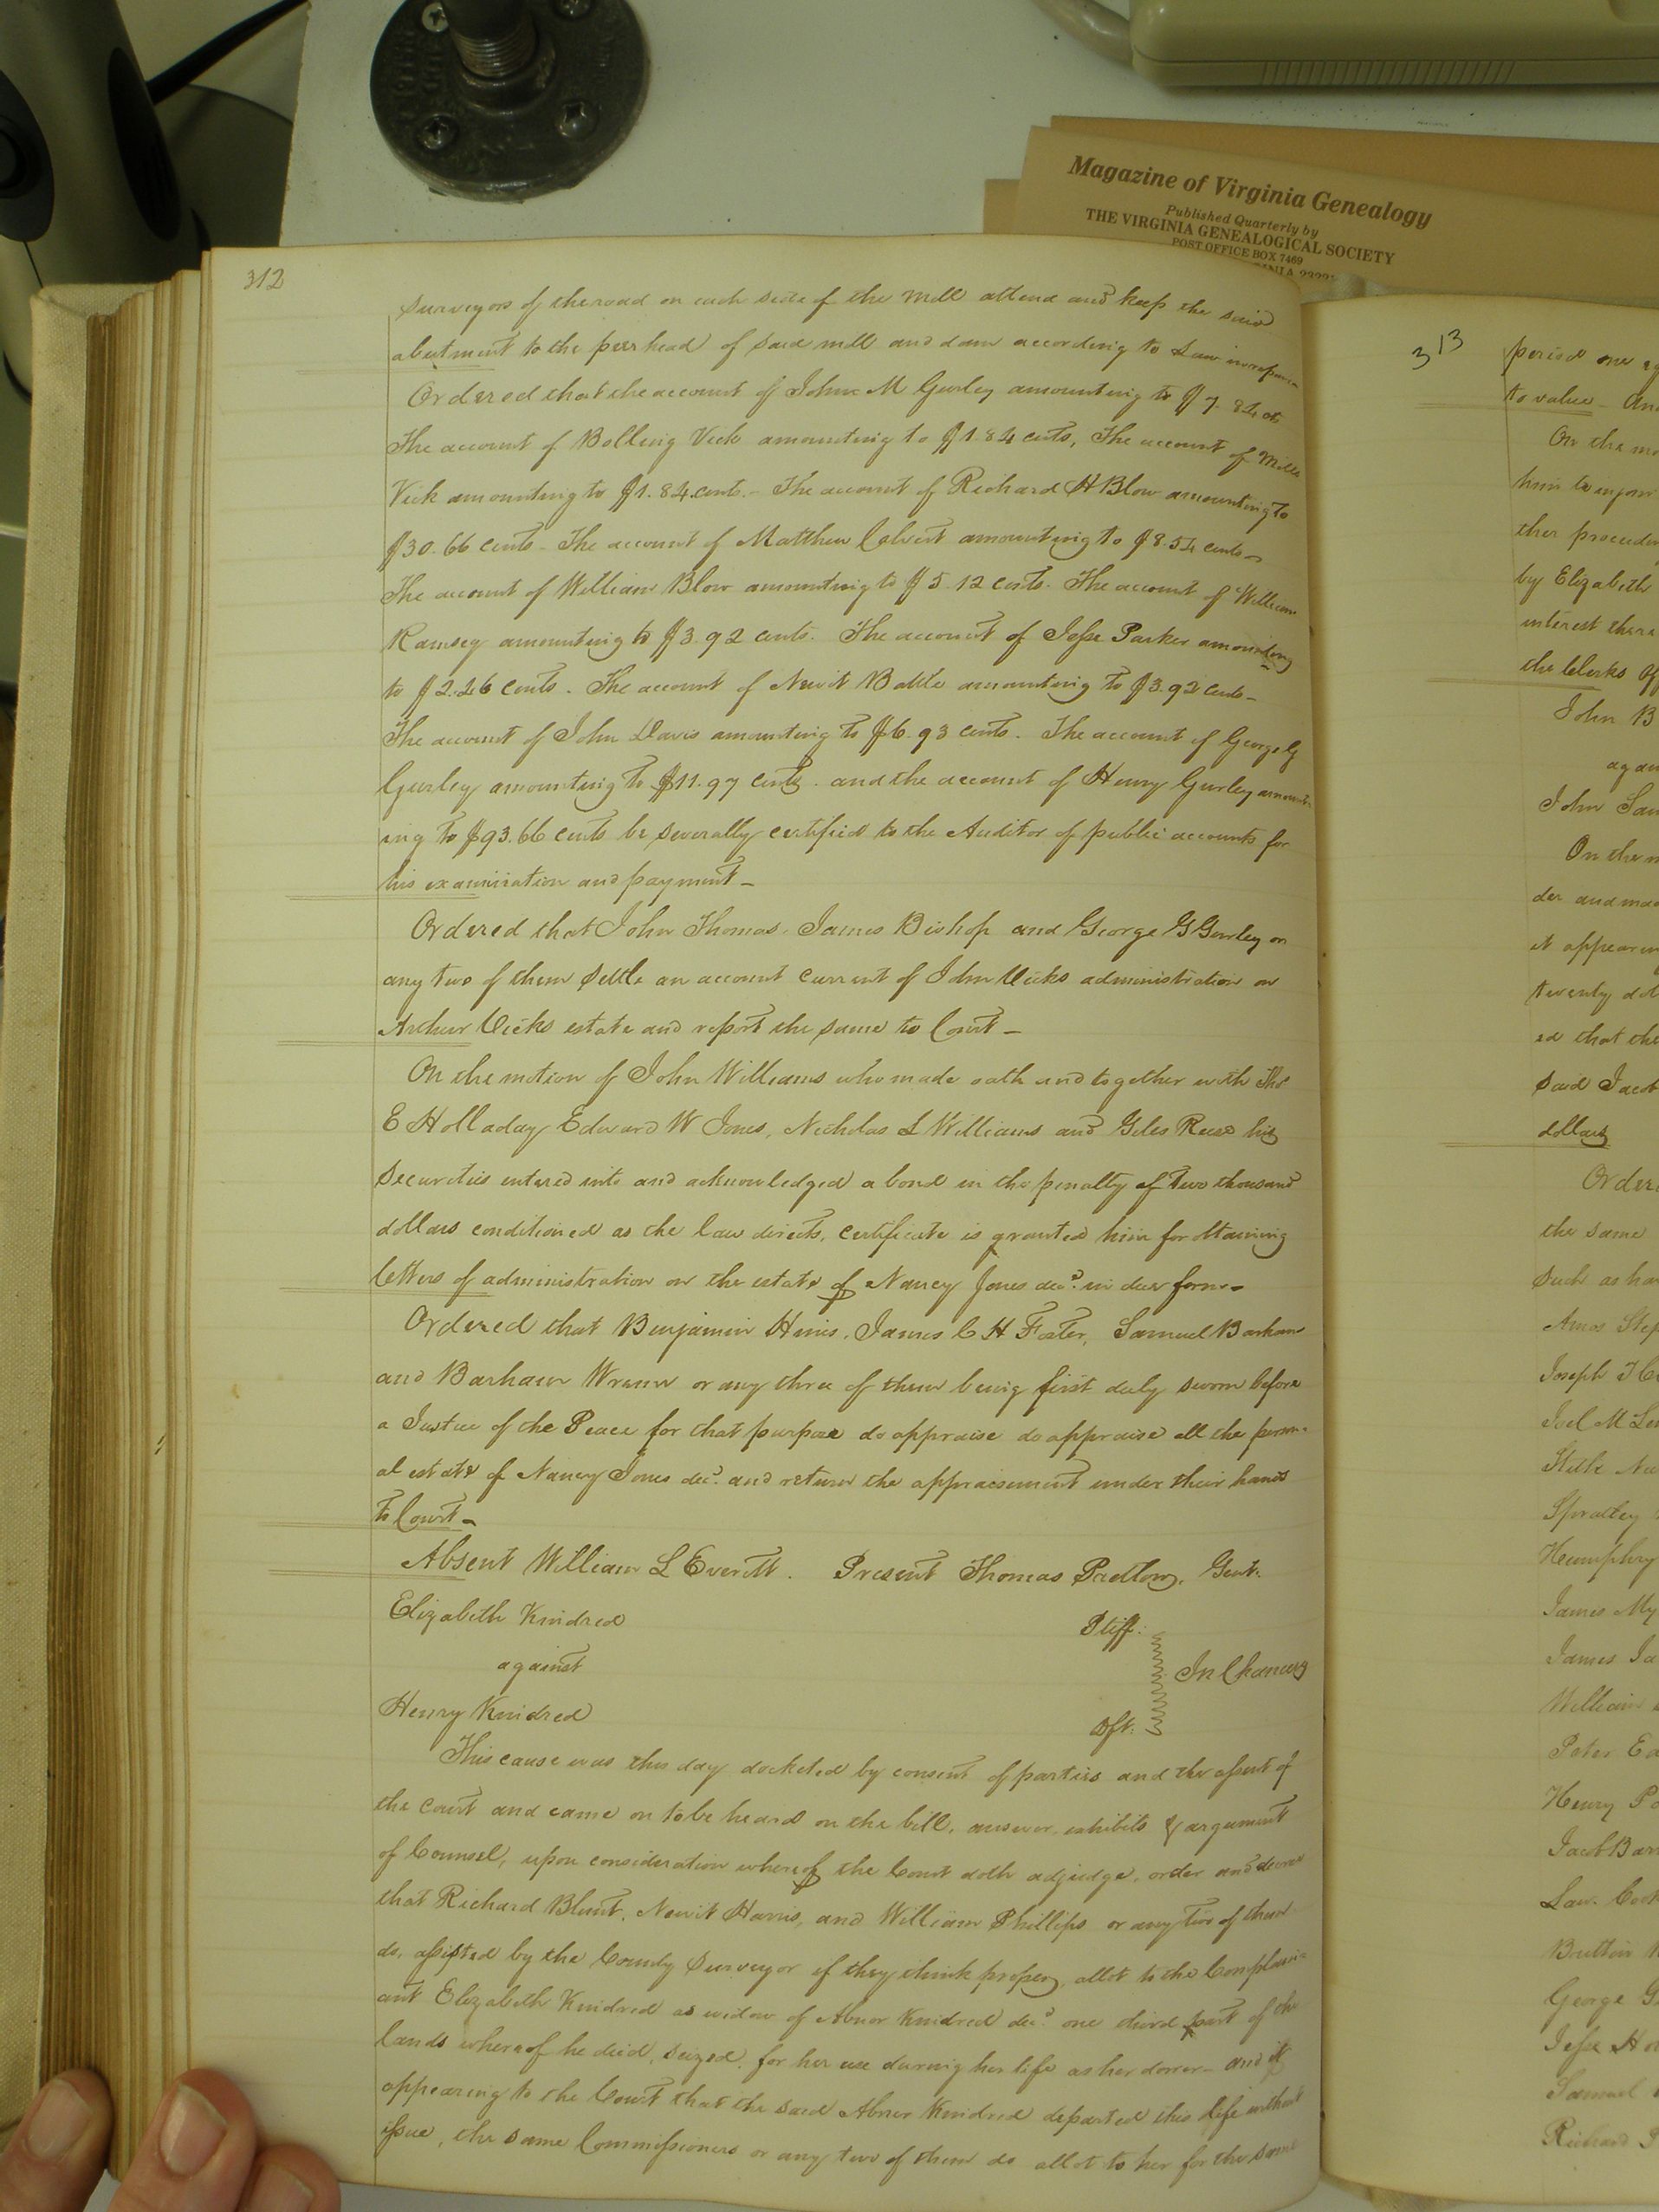 Magazine of Virginia Genealogy
Published Quarterly by
THE VIRGINIA GENEALOGICAL SOCIETY
POST OFFICE BOX 7469
312
surveyors of the road on each side of the mill attend and keep the said
abutment to the pier head of said mill and dam according to Law
Ordered that the account of John M Gurley amounting to $7.84 cts
The account of Bolling Vick amounting to $1.84 cents, The account of Mills
Vick amounting to $1.84 cents.- The account of Richard H Blow amounting to
$30.66 cents - The account of Matthew Calvert amounting to $8.54 cents -
The account of William Blow amounting to $5.12 cents. The account of William
Ramsey amounting to $3.92 cents. The account of Jesse Parker amounting
to $2.26 cents. The account of Newit Battle amounting to $3.92 cents -
The account of John Davis amounting to $6.93 cents. The account of George G
Gurley amounting to $11.97 cents. and the account of Henry Gurley amount
ing to $93.66 cents be severally certified to the Auditor of public accounts for
his examination and payment -
Ordered that John Thomas, James Bishop and George G Gurley or
any two of them settle an account current of John Vicks administration on
Arthur Vicks estate and report the same to Court -
On the motion of John Williams who made oath and together with Tho.
E Holladay Edward W Jones, Nicholas L Williams and Giles Reese his
securities entered into and acknowledged a bond in the penalty of Two thousand
dollars conditioned as the law directs, certificate is granted him for obtaining
letters of administration on the estate of Nancy Jones decd. in due form -
Ordered that Benjamin Hines, James C H Foster, Samuel Barham
and Barham Wrenn or any three of them being first duly sworn before
a Justice of the Peace for that purpose do appraise do appraise all the person-
al estate of Nancy Jones decd. and return the appraisement under their hands
to Court -
Absent William L Everitt. Present Thomas Pretlow, Gent.
Elizabeth Kindred Pltff.
against In Chancery
Henry Kindred Dft.
This cause was this day docketed by consent of parties and the assent of
the Court and came on to be heard on the bill, answer, exhibits & argument
of Counsel, upon consideration whereof the Court doth adjudge, order and decree
that Richard Blunt, Newit Harris, and William Phillips or any two of them
do, assisted by the County Surveyor if they think proper, allot to the Complain
ant Elizabeth Kindred as widow of Abner Kindred decd. one third part of the
lands whereof he died, seized, for her use during her life as her dower - and it
appearing to the Court that the said Abner Kindred departed this life without
issue, the same Commissioners or any two of them do allot to her for the same
313
period one
to value
On the mo
him to enjoin
ther proceed
by Elizabeth
interest there
the Clerks Of
John B
again
John Sau
On the m
der and mad
it appearin
twenty dol
ed that the
said Jacob
dollars
Order
the same
such as ha
Amos Step
Joseph T
Joel M
Spratley
Humphry
James My
James Ja
William
Peter Ed
Henry Po
Jacob Bar
Britton
George G
Jesse Ho
Samuel
Richard